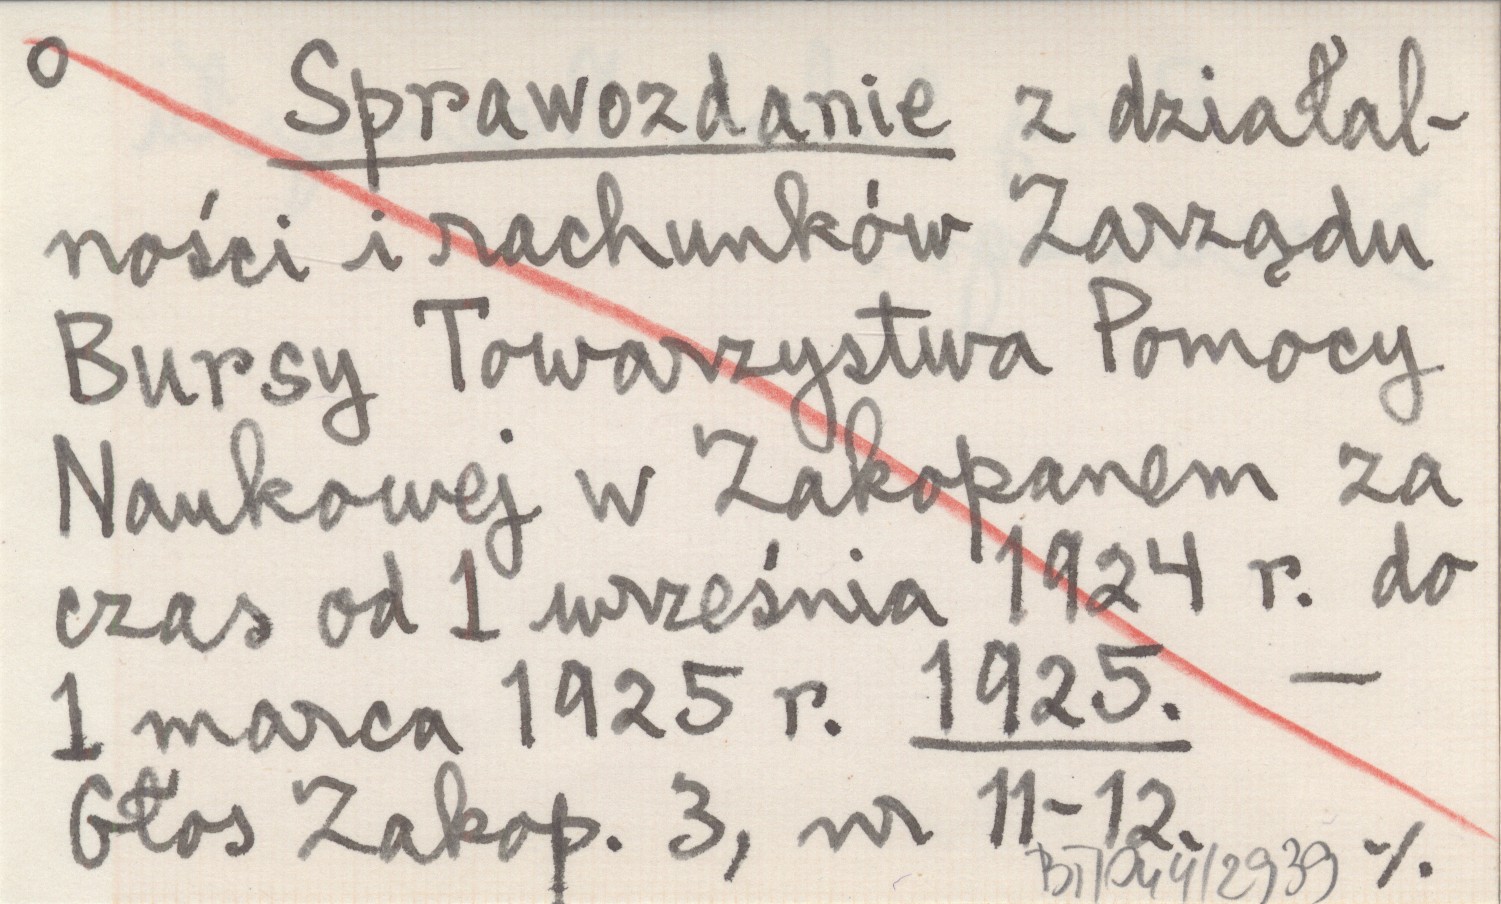 o Sprawozdanie z działal-
ności i rachunków Zarządu
Bursy Towarzystwa Pomocy
Naukowej w Zakopanem za
czas od 1 września 1924 r. do
1 marca 1925 r. 1925. —
Głos Zakop. 3, nr 11-12.
·/.